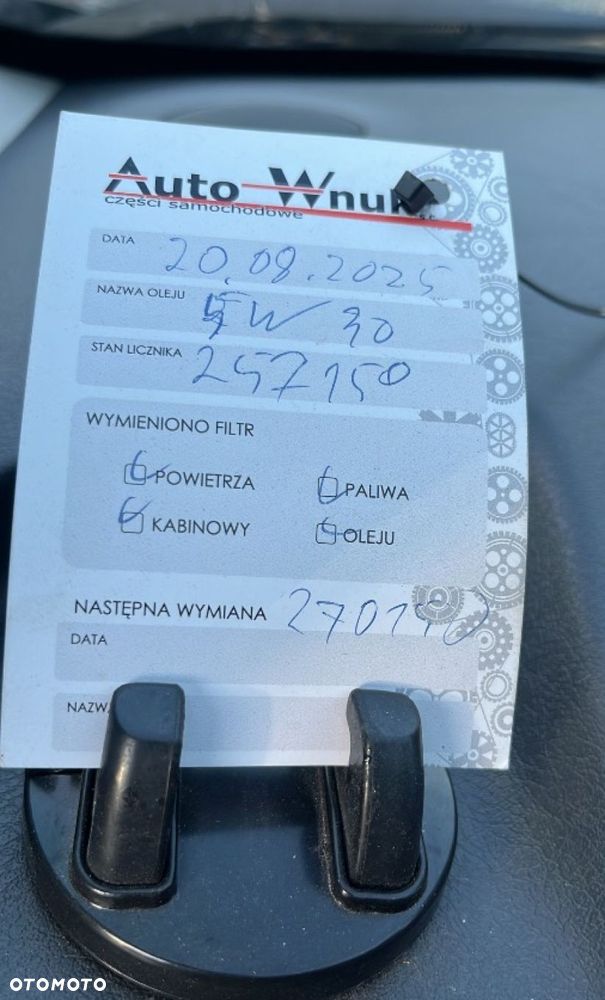 Auto Wnuk
części samochodowe s.c.
DATA 20.08.2025
NAZWA OLEJU 5W 30
STAN LICZNIKA 257150
WYMIENIONO FILTR
POWIETRZA PALIWA
KABINOWY OLEJU
NASTĘPNA WYMIANA
DATA
NAZW
OTOMOTO